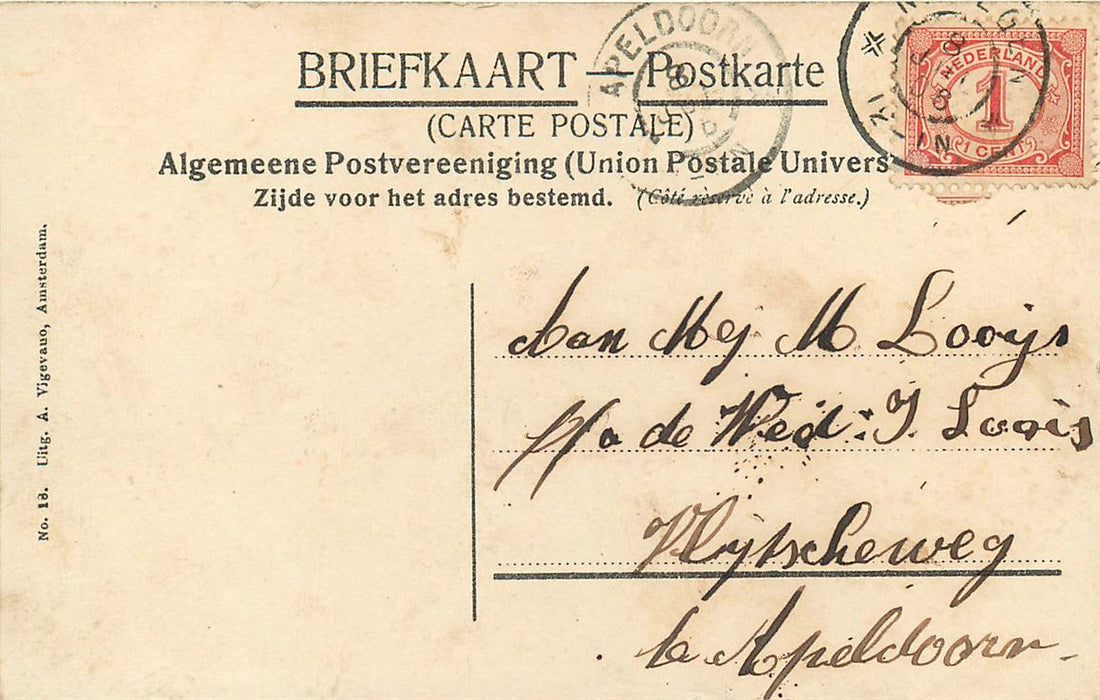 BRIEFKAART — Postkarte
(CARTE POSTALE)
Algemeene Postvereeniging (Union Postale Univers
Zijde voor het adres bestemd. (Côté rèservè à l'adresse.)
APELDOORN
NEDERLAND
1
1 CENT
No. 18. Uitg. A. Vigevano, Amsterdam.
Aan Mej M Looijs
p/a de Wed: J. Looijs
Vlijtscheweg
te Apeldoorn